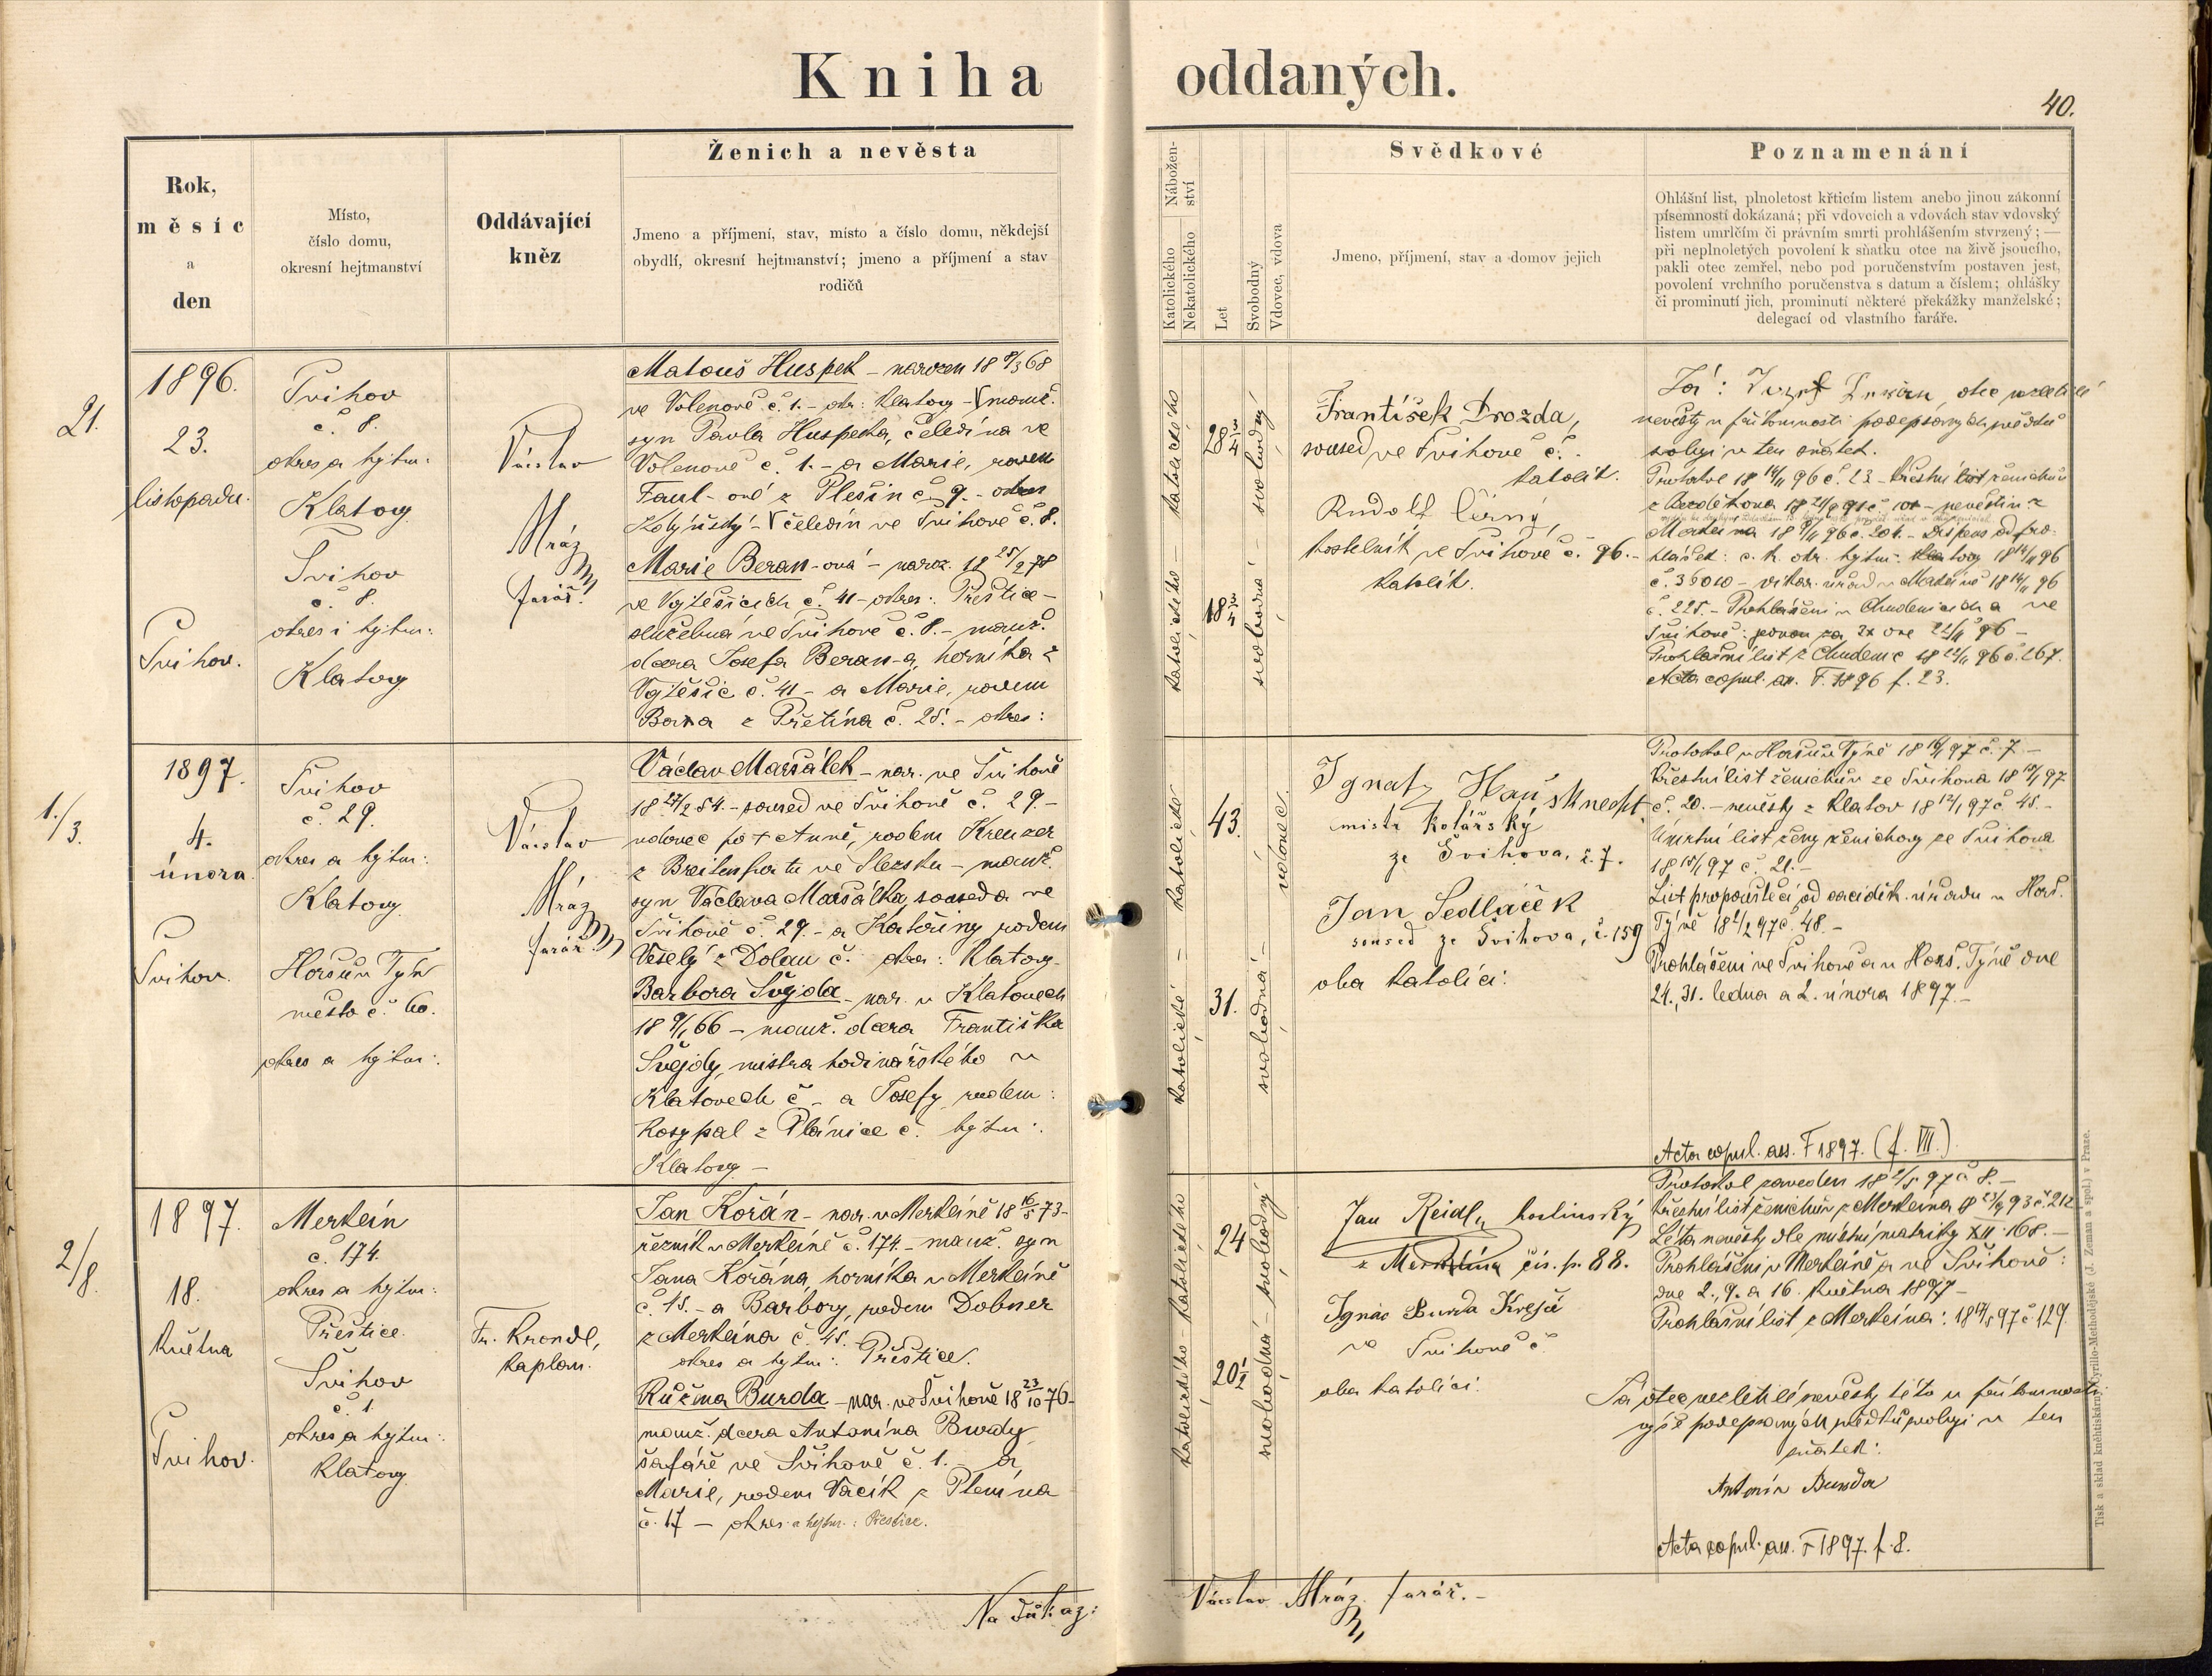 Kniha oddaných.
40.
Rok,
měsíc
a
den
Místo,
číslo domu,
okresní hejtmanství
Oddávající
kněz
Ženich a nevěsta
Jmeno a příjmení, stav, misto a číslo domu, někdejší
obydlí, okresní hejtmanství; jmeno a příjmení a stav
rodičů
Nábožen-
ství
Katolického
Nekatolického
Let
Svobodný
Vdovec, vdova
Svědkové
Jmeno, příjmení, stav a domov jejich
Poznamenání
Ohlášní list, plnoletost křticím listem anebo jinou zákonní
písemností dokázaná; při vdovcích a vdovách stav vdovský
listem umrlčím či právním smrti prohlášením stvrzený; —
při neplnoletých povolení k sňatku otce na živě jsoucího,
pakli otec zemřel, nebo pod poručenstvím postaven jest,
povolení vrchního poručenstva s datum a číslem; ohlášky
či prominutí jich, prominutí některé překážky manželské;
delegací od vlastního faráře.
21.
1896.
23.
listopadu.
Švihov.
Švihov
č. 8.
okres a hejtm:
Klatovy
Švihov
č. 8.
okres i hejtm:
Klatovy
Václav
Mráz
farář.
Matouš Huspek – narozen 18 9/3 68
ve Volenově č. 1. – okr: Klatovy – manž.
syn Pavla Huspeka, čeledína ve
Volenově č. 1. – a Marie, rozen
Faul-ové z Plešin č. 9. – okres
– čeledín ve Švihově č. 8.
Marie Beran-ová – naroz. 18 25/2 78
ve Vojtěšicích č. 41 – okres: Přeštice –
služebná ve Švihově č. 8. – manž.
dcera Josefa Beran-a, horníka z
Vojtěšic č. 41 – a Marie, rodem
z Přetína č. 25. – okres:
katolického – katolického
28 3/4
18 3/4
svobodná – svobodný
František Drozda,
soused ve Švihově č.
katolík.
Rudolf Černý,
kostelník ve Švihově č. 96. –
katolík.
Já: Josef Beran, otec nezletilé
nevěsty u přítomnosti podepsaných svědků
svoluji v ten sňatek.
Protokol 18 14/11 96 č. 23 – křestní list ženichův
18 9/11 96 č. 201. – Dispens od pro-
hlášek: c. k. okr. hejtm: Klatovy 18 14/11 96
č. 36010 – vikar. úřad v Merklíně 18 14/11 96
č. 225. – Prohlášení v Chudenicích a ve
Švihově: jednou za 3x dne 22/11 96 –
Prohlašní list z Chudenic 18 22/11 96 č. 267.
Acta copul. an. F. 1896 f. 23.
1./3.
1897.
4.
února
Švihov.
Švihov
č. 29.
okres a hejtm:
Klatovy
Horšův Týn
město č. 60.
okres a hejtm:
Václav
Mráz
farář.
Václav Maršálek – nar. ve Švihově
18 27/2 54. – soused ve Švihově č. 29. –
vdovec po + Anně, rodem Kreuzer
z Breitenfurtu ve Slezsku – manž.
syn Václava Maršálka, souseda ve
Švihově č. 29. – a Kateřiny rodem
Veselý z Dolan č. okr: Klatovy.
Barbora Švejda – nar. v Klatovech
18 9/1 66 – manž. dcera Františka
Švejdy, mistra hodinářského v
Klatovech č – a Josefy rodem:
Rosypal z Plánice č. hejtm:.
Klatovy –
katolické – katolické
43.
31.
svobodná – vdovec
Ignatz Hausknecht
mistr kolářský
ze Švihova, č. 7.
Jan Sedláček
soused ze Švihova, č. 159
oba katolíci:
Protokol v Horšův Týně 18 16/1 97 č. 7. –
Křestní list ženichův ze Švihova 18 15/1 97
č. 20. – nevěsty z Klatov 18 12/1 97 č. 45. –
Úmrtní list ženy ženichovy ze Švihova
18 15/1 97 č. 21. –
List propouštěcí od arciděk. úřadu v Horš.
Týně 18 2/2 97 č. 48. –
Prohlášeni ve Švihově a v Horš. Týně dne
24., 31. ledna a 2. února 1897. –
Acta copul. ass. F 1897. (f. VII.)
2/8.
1897.
18.
května
Švihov.
Merklín
č. 174.
okres a hejtm:
Přeštice.
Švihov
č. 1.
okres a hejtm:
Klatovy
Fr. Krondl,
kaplan.
Jan Kořán – nar. v Merklíně 18 16/5 73 –
řezník v Merklíně č. 174. – manž. syn
Jana Kořána, horníka v Merklíně
č. 15. – a Barbory, rodem Dobner
z Merklína č. 45.
okres a hejtm: Přeštice.
Růžena Burda – nar. ve Švihově 18 23/10 76 –
manž. dcera Antonína Burdy
šafáře ve Švihově č. 1. a
Marie, rodem Vacík z Plenína
č. 17 – okres a hejtm.: Přeštice.
katolického – katolického
24
20 1/2
svobodná – svobodný
Jan Reidl,
z Merklína čís. p. 88.
Ignác Burda Krejčí
ve Švihově č
oba katolíci.
Protokol zaveden 18 2/5 97 č. 8. –
Křestní list ženichův z Merklína 18 23/9 93 č. 212
Léta nevěsty dle místní matriky XII 168. –
Prohlášeni v Merklíně a ve Švihově:
dne 2., 9. a 16. května 1897 –
Prohlašní list z Merklína: 18 17/5 97 č. 129.
Já otec nezletilé nevěsty této u přítomnosti
výše podepsaných svědků svoluji v ten
sňatek:
Antonín Burda
Acta copul. an. F 1897. f. 8.
Na důkaz: Václav Mráz, farář. –
Tisk a sklad knihtiskárny Cyrillo-Methodějské (J. Zeman a spol.) v Praze.